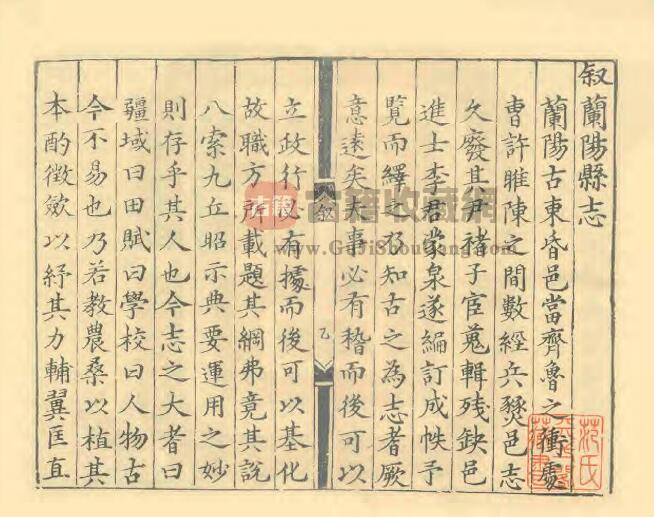 叙蘭陽縣志
蘭陽古東昏邑當齊魯之衝處
曹許睢陳之間數經兵燹邑志
久廢其尹褚子宦蒐輯殘缺邑
進士李君蒙泉遂編訂成帙予
覧而繹之乃知古之為志者厥
意遠矣夫事必有稽而後可以
叙
乙
立政行必有據而後可以基化
故職方所載題其綱弗竟其說
八索九丘昭示典要運用之妙
則存乎其人也今志之大者曰
疆域曰田賦曰學校曰人物古
今不易也乃若教農桑以植其
本酌徵斂以紓其力輔翼匡直
古籍收藏網
www.GuJiShouCang.com
范氏
藏書